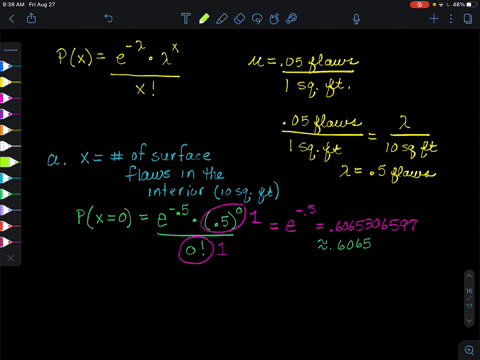 9:38 AM Fri Aug 27
48%
P(x) = e^-λ · λ^x / x!
μ = .05 flaws / 1 sq. ft.
.05 flaws / 1 sq. ft. = λ / 10 sq ft
λ = .5 flaws
a. x = # of surface
flaws in the
interior (10 sq. ft)
P(x=0) = e^-.5 · (.5)^0 1 / 0! 1 = e^-.5 = .6065306597
≈ .6065
16
17